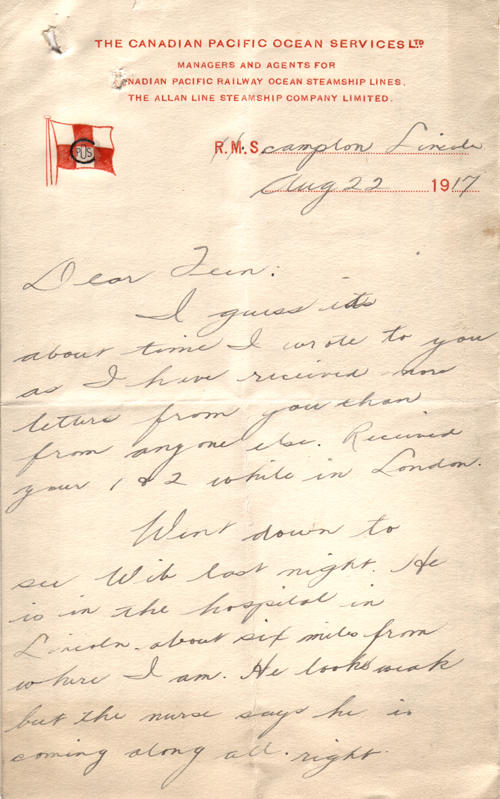 THE CANADIAN PACIFIC OCEAN SERVICES LTD
MANAGERS AND AGENTS FOR
NADIAN PACIFIC RAILWAY OCEAN STEAMSHIP LINES.
THE ALLAN LINE STEAMSHIP COMPANY LIMITED.
CPOS
R.M.Scampton Lincoln
Aug 22 1917
Dear Teen:
I guess its
about time I wrote to you
as I have received more
letters from you than
from anyone else. Received
your 1 & 2 while in London.
Went down to
see Wib last night. He
is in the hospital in
Lincoln - about six miles from
where I am. He looks weak
but the nurse says he is
coming along all right.